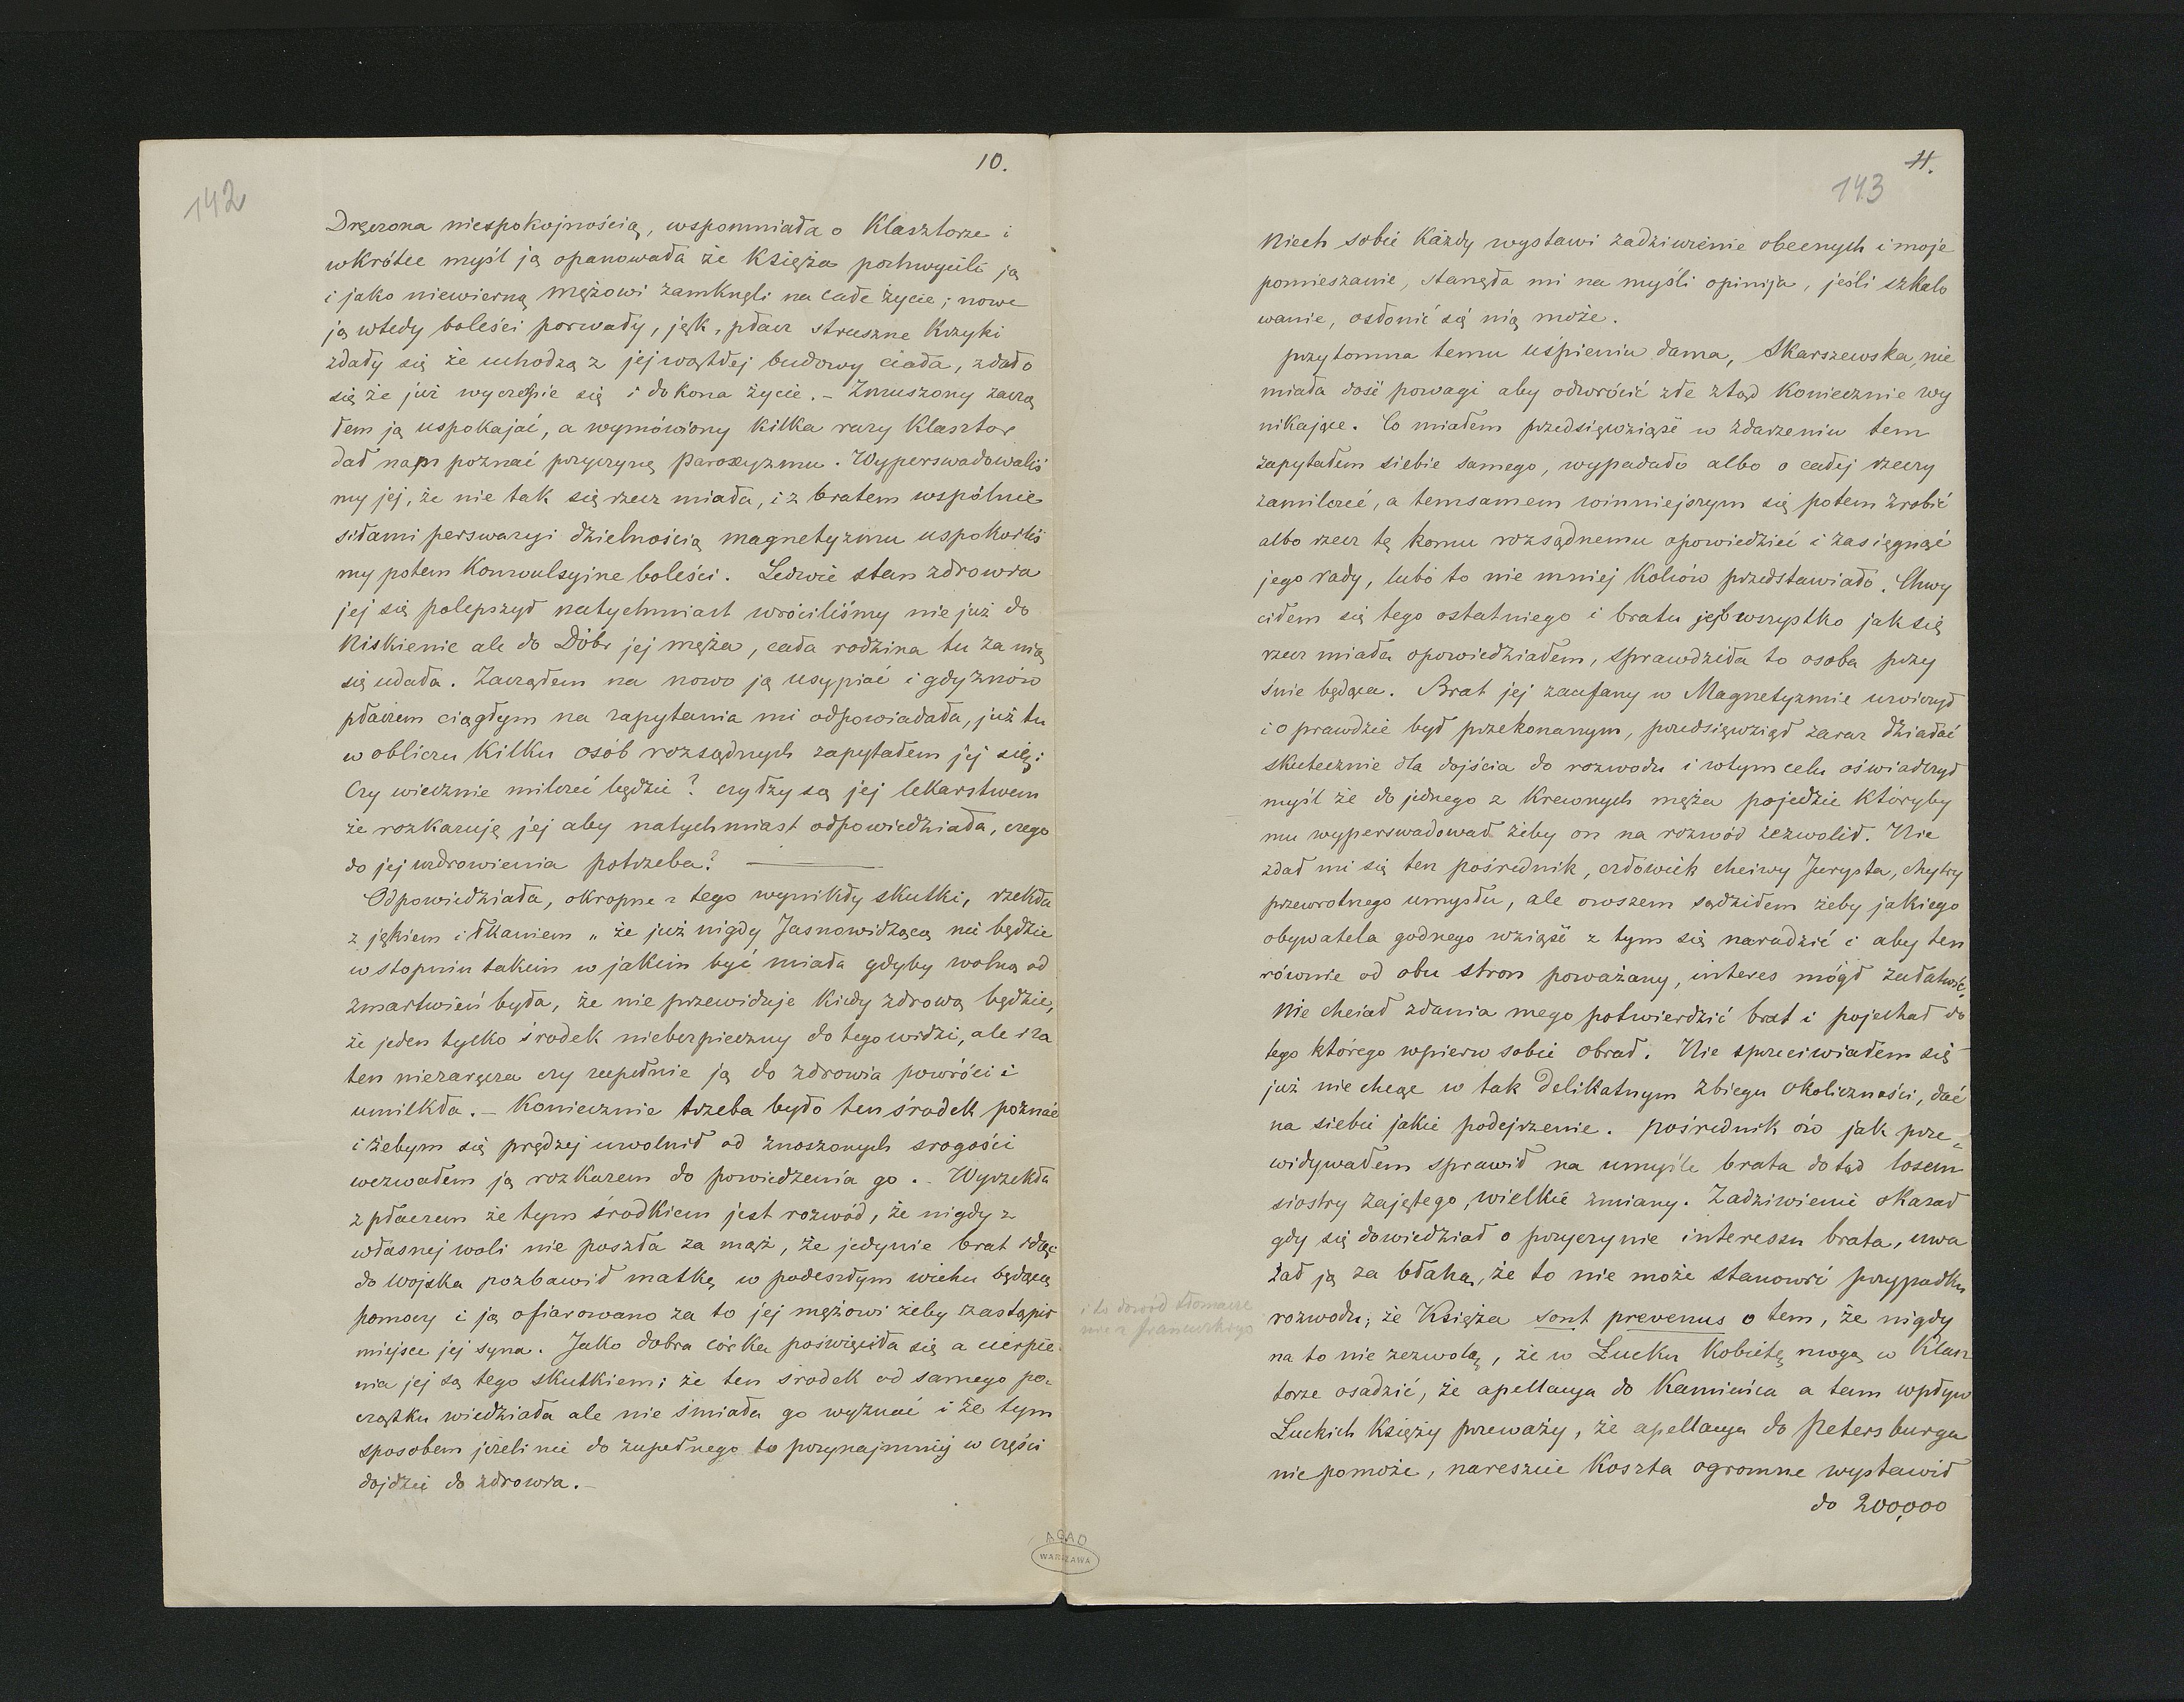 142
10.
Dręczona niespokojnością, wspomniała o Klasztorze i
wkrótce myśl ją opanowała że Księża pochwycili ją
i jako niewierną mężowi zamknęli na całe życie; nowe
ją wtedy boleści porwały, jęk, płacz straszne Krzyki
zdały się że uchodzą z jej wątłej budowy ciała, zdało
się że już wyczerpie się i dokona życie. – Zmuszony zaczą
łem ją uspokajać, a wymówiony Kilka razy Klasztor
dał nam poznać przyczynę Paroxyzmu. Wyperswadowaliś
my jej, że nie tak się rzecz miała, i z bratem wspólnie
siłami perswazyi dzielnością magnetyzmu uspokoiliś
my potem Konwulsyjne boleści. Ledwie stan zdrowia
jej się polepszył natychmiast wróciliśmy nie już do
Niskienic ale do Dóbr jej męża, cała rodzina tu za nią
się udała. Zacząłem na nowo ją usypiać i gdy znów
płaczem ciągłym na zapytania mi odpowiadała, już tu
w obliczu Kilku osób rozsądnych zapytałem jej się:
Czy wiecznie milczeć będzie? czy łzy są jej lekarstwem
że rozkazuję jej aby natychmiast odpowiedziała, czego
do jej uzdrowienia potrzeba? ———
Odpowiedziała, okropne z tego wynikły skutki, rzekła
z jękiem i łkaniem „ że już nigdy Jasnowidzącą nie będzie
w stopniu takim w jakim być miała gdyby wolną od
zmartwień była, że nie przewiduje Kiedy zdrową będzie,
że jeden tylko środek niebezpieczny do tego widzi, ale i za
ten nie zaręcza czy zupełnie ją do zdrowia powróci i
umilkła. – Koniecznie trzeba było ten środek poznać
i żebym się prędzej uwolnił od znoszonych srogości
wezwałem ją rozkazem do powiedzenia go. – Wyrzekła
z płaczem że tym środkiem jest rozwód, że nigdy z
własnej woli nie poszła za mąż, że jedynie brat idąc
do Wojska pozbawił matkę w podeszłym wieku będącą
pomocy i ją ofiarowano za to jej mężowi żeby zastąpił
miejsce jej syna. Jako dobra córka poświęciła się a cierpie
nia jej są tego skutkiem; że ten środek od samego po-
czątku wiedziała ale nie śmiała go wyznać i że tym
sposobem jeżeli nie do zupełnego to przynajmniej w części
dojdzie do zdrowia. –
11.
143
Niech sobie Każdy wystawi zadziwienie obecnych i moje
pomieszanie, stanęła mi na myśli opinija, jeśli szkalo
wanie, osłonić się nią może.
przytomna temu uśpieniu dama, Skarszewska, nie
miała dość powagi aby odwrócić złe ztąd Koniecznie wy
nikające. Co miałem przedsięwziąść w zdarzeniu tem
zapytałem siebie samego, wypadało albo o całej rzeczy
zamilczeć, a temsamem winniejszym się potem zrobić
albo rzecz tę komu rozsądnemu opowiedzieć i zasięgnąć
jego rady, lubo to nie mniej Kolców przedstawiało. Chwy
ciłem się tego ostatniego i bratu jej wszystko jak się
rzecz miała opowiedziałem, sprawdziła to osoba przy
śnie będąca. Brat jej zaufany w Magnetyzmie uwierzył
i o prawdzie był przekonanym, przedsięwziął zaraz działać
skutecznie dla dojścia do rozwodu i w tym celu oświadczył
myśl że do jednego z Krewnych męża pojedzie Któryby
mu wyperswadował żeby on na rozwód zezwolił. Nie
zdał mi się ten pośrednik, człowiek chciwy Jurysta, chytry
przewrotnego umysłu, ale owszem sądziłem żeby jakiego
obywatela godnego wziąść z tym się naradzić i aby ten
równie od obu stron poważany, interes mógł załatwić.
Nie chciał zdania mego potwierdzić brat i pojechał do
tego którego wpierw sobie obrał. Nie sprzeciwiałem się
już nie chcąc w tak delikatnym zbiegu okoliczności, dać
na siebie jakie podejrzenie. pośrednik ów jak prze-
widywałem sprawił na umyśle brata dotąd losem
siostry zajętego, wielkie zmiany. Zadziwienie okazał
gdy się dowiedział o przyczynie interessu brata, uwa
żał ją za błahą, że to nie może stanowić przypadku
rozwodu; że Księża sont prevenus o tem, że nigdy
na to nie zezwolą, że w Łucku Kobietę mogą w Klasz
torze osadzić, że apellacya do Kamieńca a tam wpływ
Łuckich Księży przeważy, że apellacya do Petersburga
nie pomoże, nareszcie Koszta ogromne wystawił
do 200,000
i to dowód tłomacze
nia z francuskiego
AGAD
WARSZAWA